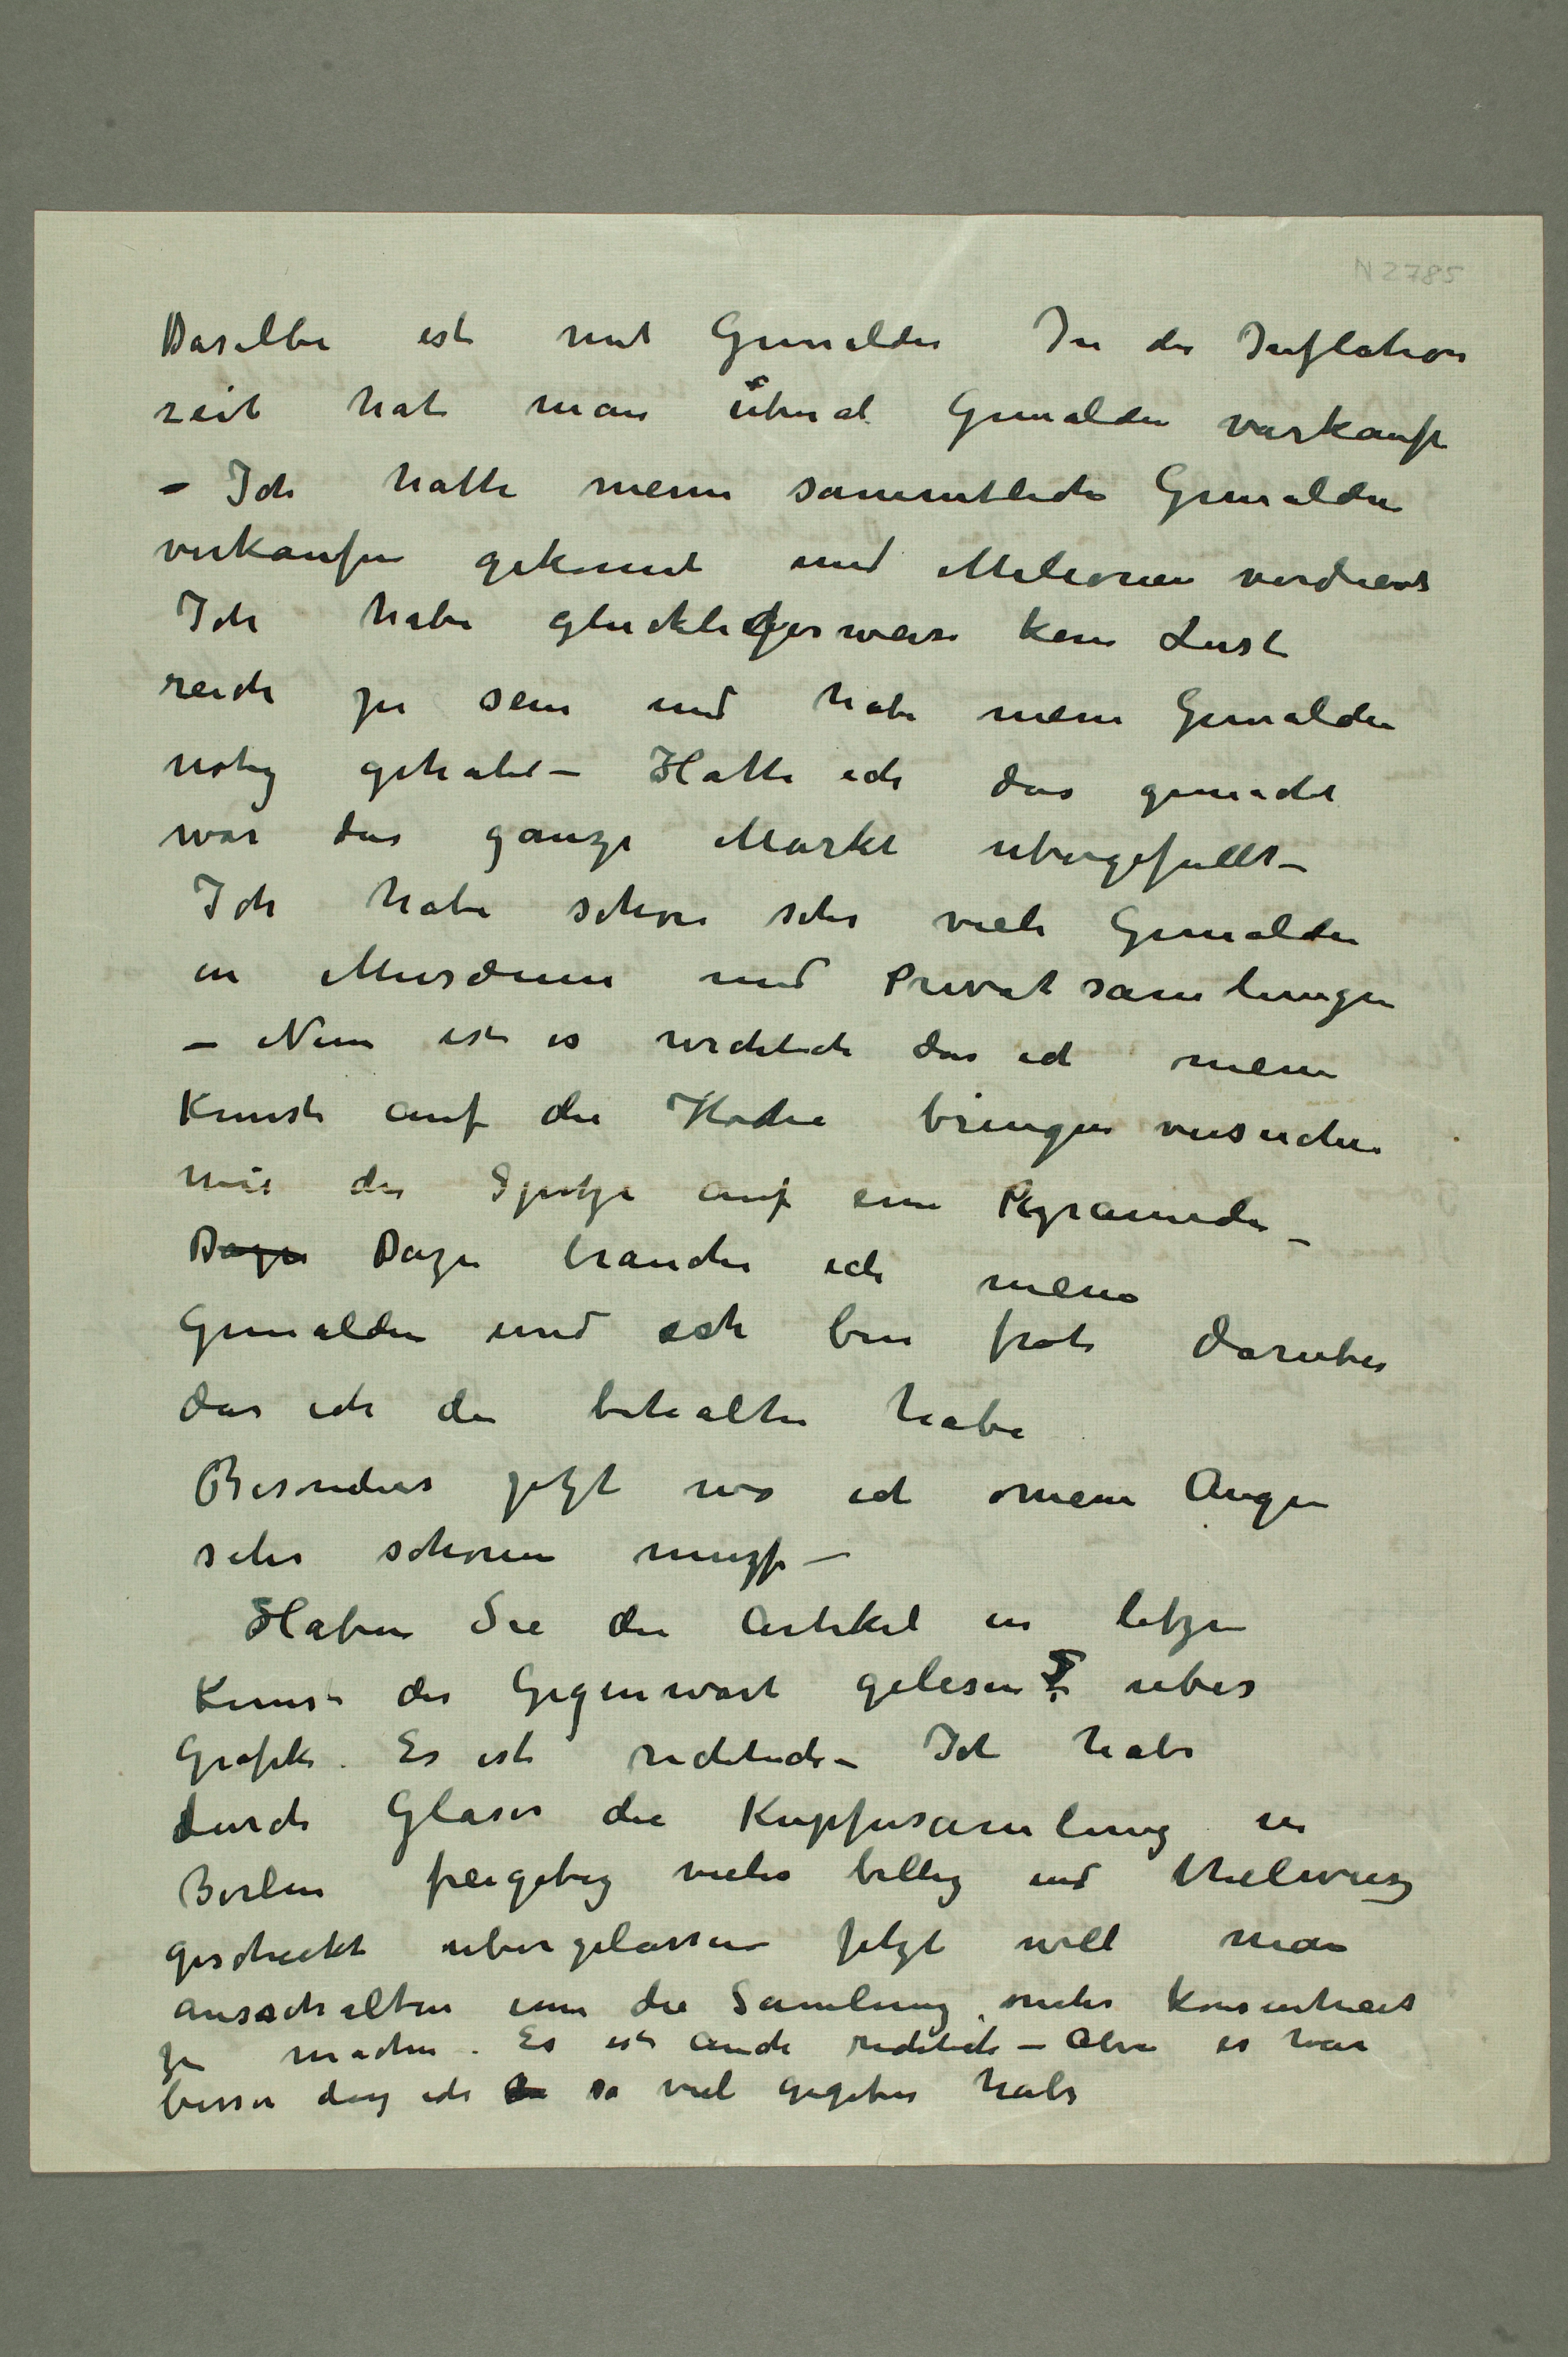 N 2785
Daselbe ist mit Gemälden In der Inflation
zeit hat man überal Gemälden varkauft
– Ich hatte meine sammtliche Gemälden
verkaufen gekonnt und Milionen verdient
Ich habe glücklicherweise kein Lust
reich zu sein und habe meine Gemälden
nötig gehabt – Hatte ich das gemacht
war das ganze Markt ubergefullt –
Ich habe schon sehr viele Gemälden
in Musæum und Privatsamlungen
– Nun ist es wichtich das ich meine
Kunst auf die Hohe bringen versuche
wie die Spitze auf eine Pyramide –
Dazu Dazu brauche ich meine
Gemälden und ich bin froh daruber
das ich die behalten habe
Besonders jetzt wo ich meine Augen
sehr schonen muszs –
Haben Sie die Artikel in letzen
Kunst der Gegenwart gelesen? uber
Grafik. Es ist richtich – Ich habe
durch Glaser die Kupfersamlung in
Berlin freigebig vieles billig und
geschickt ubergelassen Jetzt will man
ausschalten um die Samlung mehr konsentriert
zu machen. Es ist auch richtich – Aber es war
besser dasz ich so viel gegeben habe